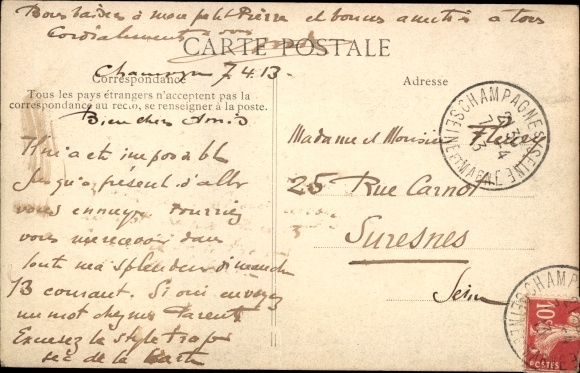 Bons baisers à mon petit Pierre et bonnes amitiés à tous
Cordialement à vous
CARTE POSTALE
Correspondance
Champagne 7.4.13.
Tous les pays étrangers n'acceptent pas la
correspondance au recto, se renseigner à la poste.
Bien chers Amis
Il m'a été impossible
jusqu'à présent d'aller
vous ennuyer. Pourriez
vous me recevoir dans
toute ma splendeur dimanche
13 courant. Si oui envoyez
un mot chez mes Parents
Excusez le style trop
sec de la carte
Adresse
Madame et Monsieur Fleury
25 Rue Carnot
Suresnes
Seine
CHAMPAGNE S/SEINE
SEINE-ET-MARNE
CHAMPAGNE
10c
POSTES